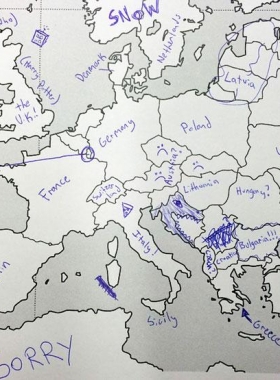 SNOW
(Harry Potter)
the
UK!
Denmark
Netherlands?
Latvia
Germany
Poland
France
Austria?
Lithuania
Hungary?
Italy!
Bulgaria!!!
Sicily
Greece
SORRY